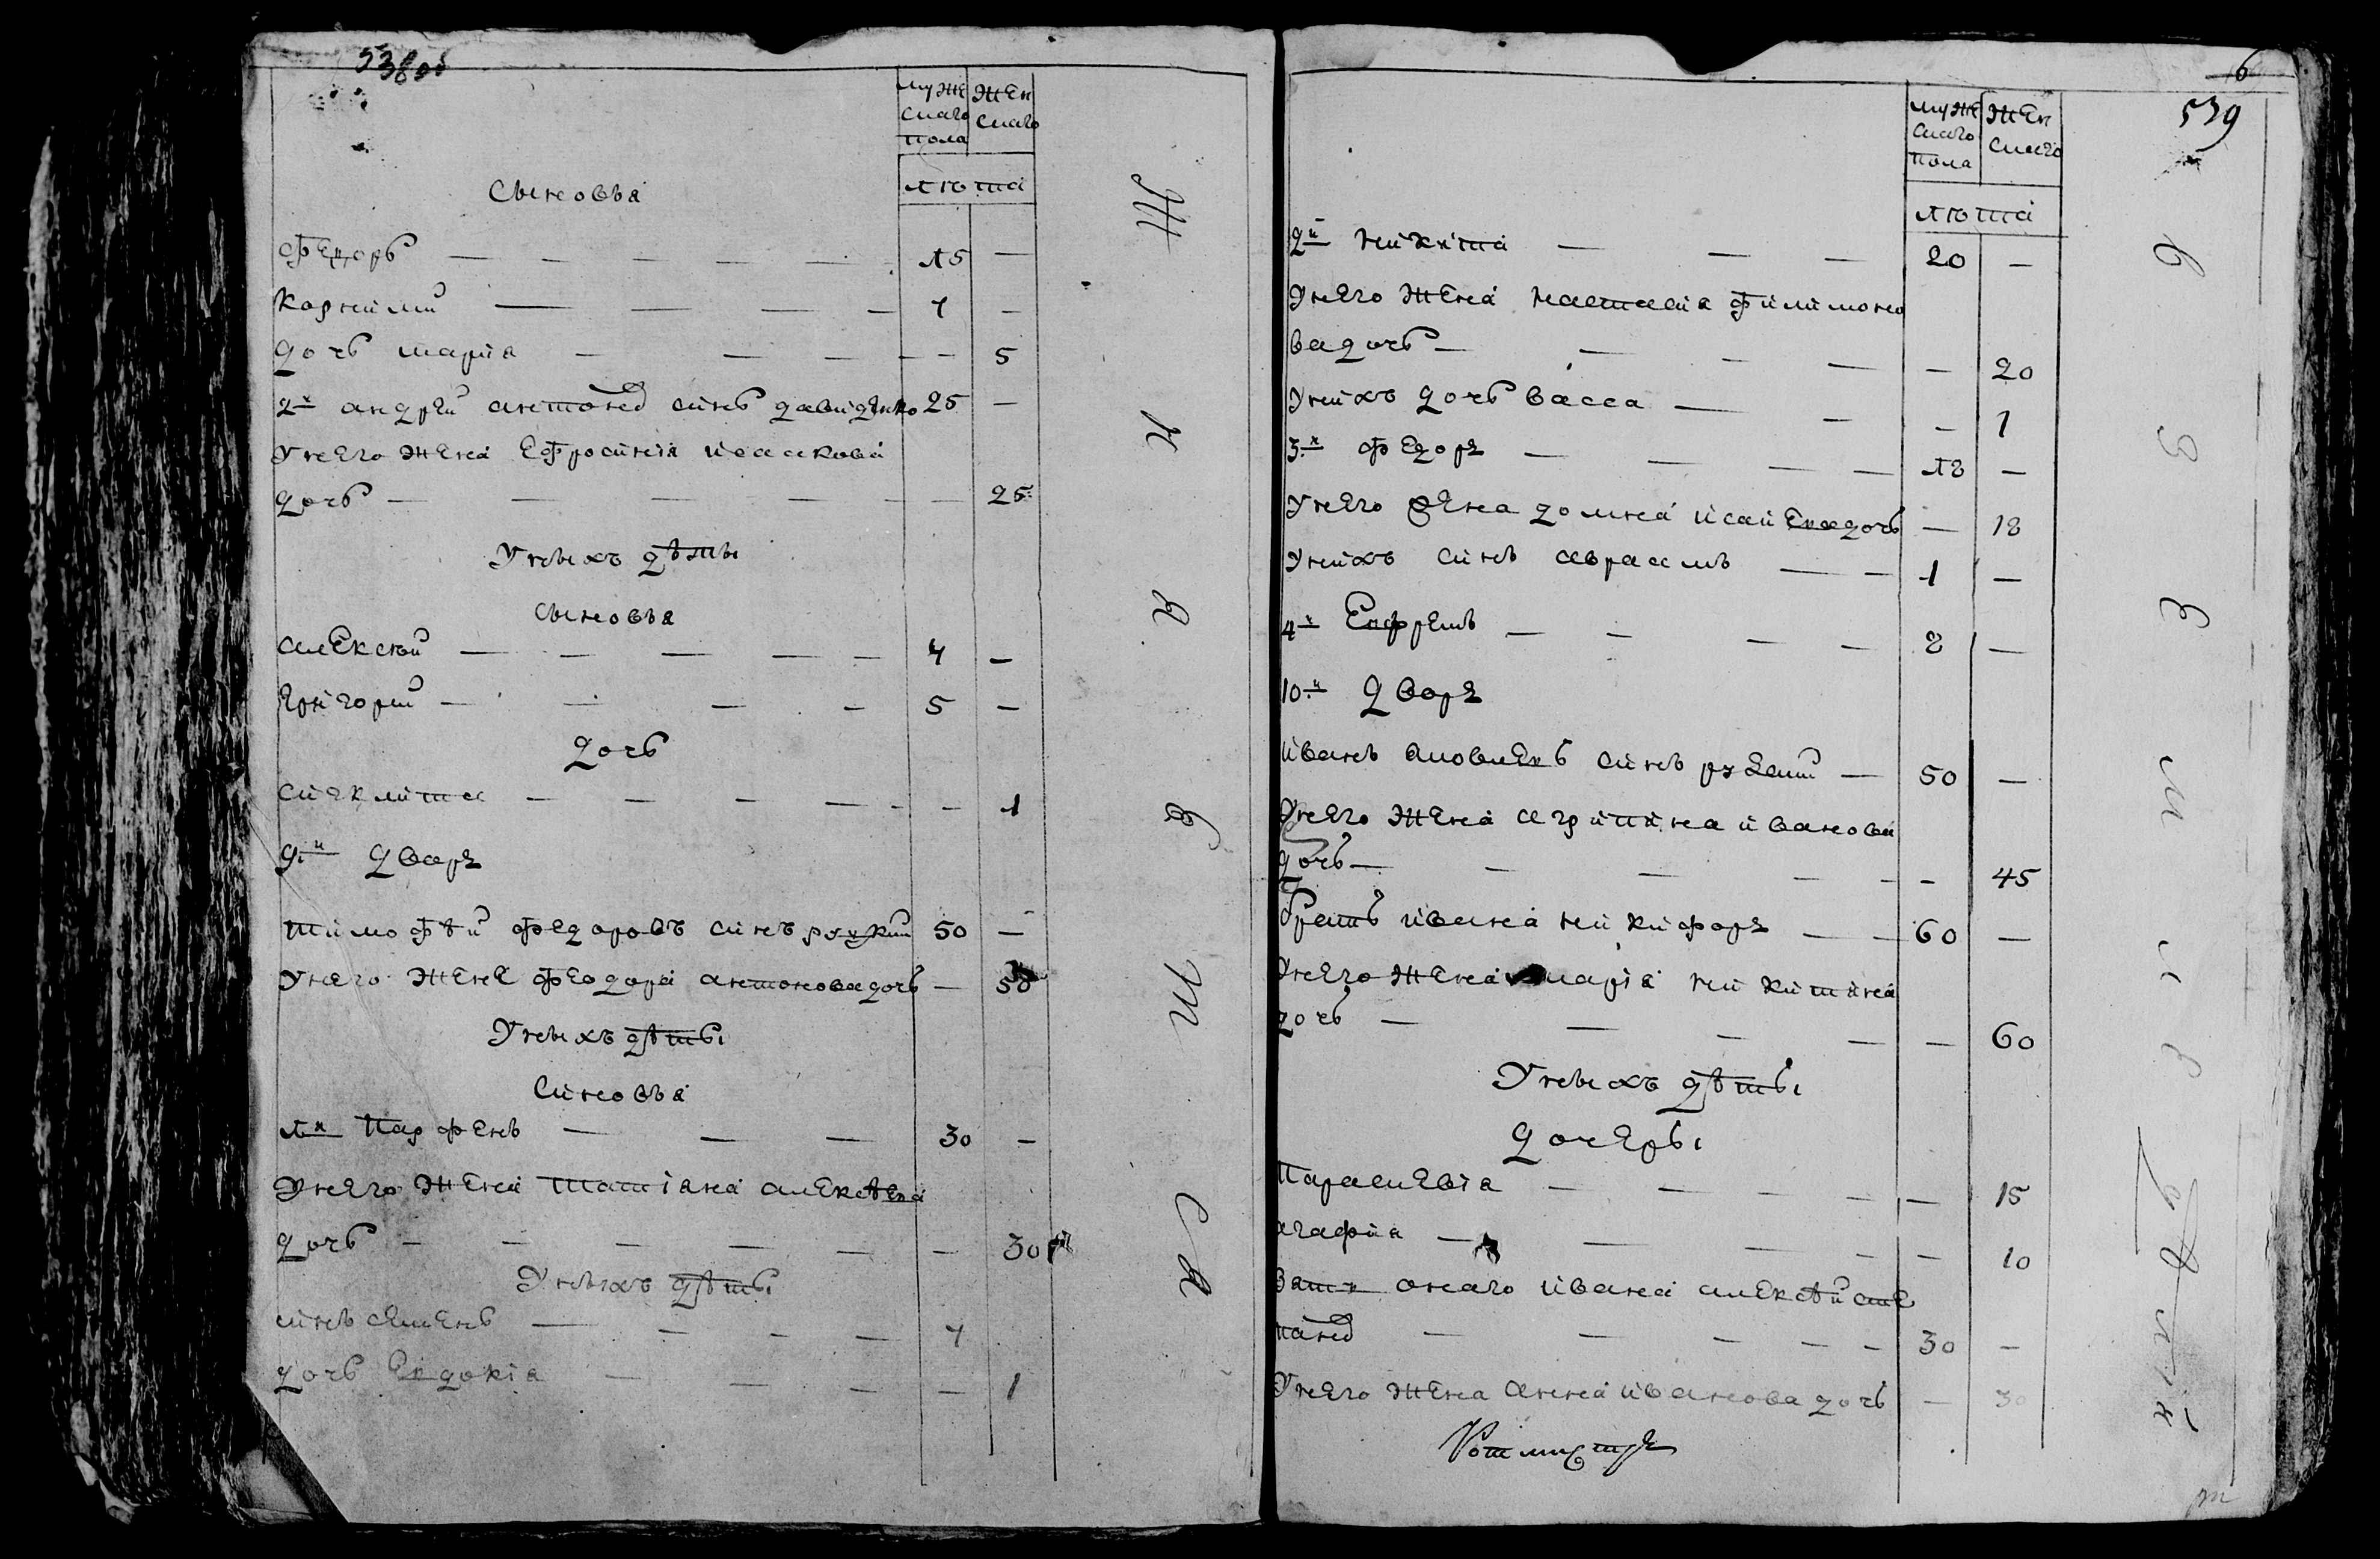 538об
муже
скаго
пола
жен
скаго
лѣта
Сыновья
Федоръ — 15 —
Корнилий — 7 —
дочь Мария — — 5
2й Андрей Антонов синъ Давиденко 25 —
У него жена Ефросиния Исаакова
дочь — — 25
У ныхъ дѣты
Сыновья
Алексѣй — 7 —
Григорий — 5 —
дочь
Сиклита — — 1
9й дворъ
Тимофѣй Федоровъ синъ 50 —
У него жена Феодора Антонова дочь — 50
У ныхъ дѣты
Синовья
1й Парфенъ — 30 —
У него жена Татіана Алексѣева
дочь — — 30
У ныхъ дѣты
синъ Семенъ — 7
дочь Евдокія — — 1
6
539
муже
скаго
пола
жен
скаго
лѣта
2й Никита — 20 —
У него жена Настасія Филимоно
ва дочь — — 20
У нихъ дочь Васса — — 1
3й Федоръ — 18 —
У него жена Домна Исайева дочь — 18
У нихъ синъ Авраамъ — 1 —
4й Ефремъ — 8 —
10й дворъ
Иванъ синъ 50 —
У него жена Агрипина Иванова
дочь — — 45
Братъ Ивана Никифоръ — 60 —
У него жена Марія Никитина
дочь — — 60
У ныхъ дѣты
дочеры
Параскевія — — 15
Агафия — — 10
Зять онаго Ивана Алексѣй Сте
панов — 30 —
У него жена Анна Иванова дочь — 30
Ротмистръ